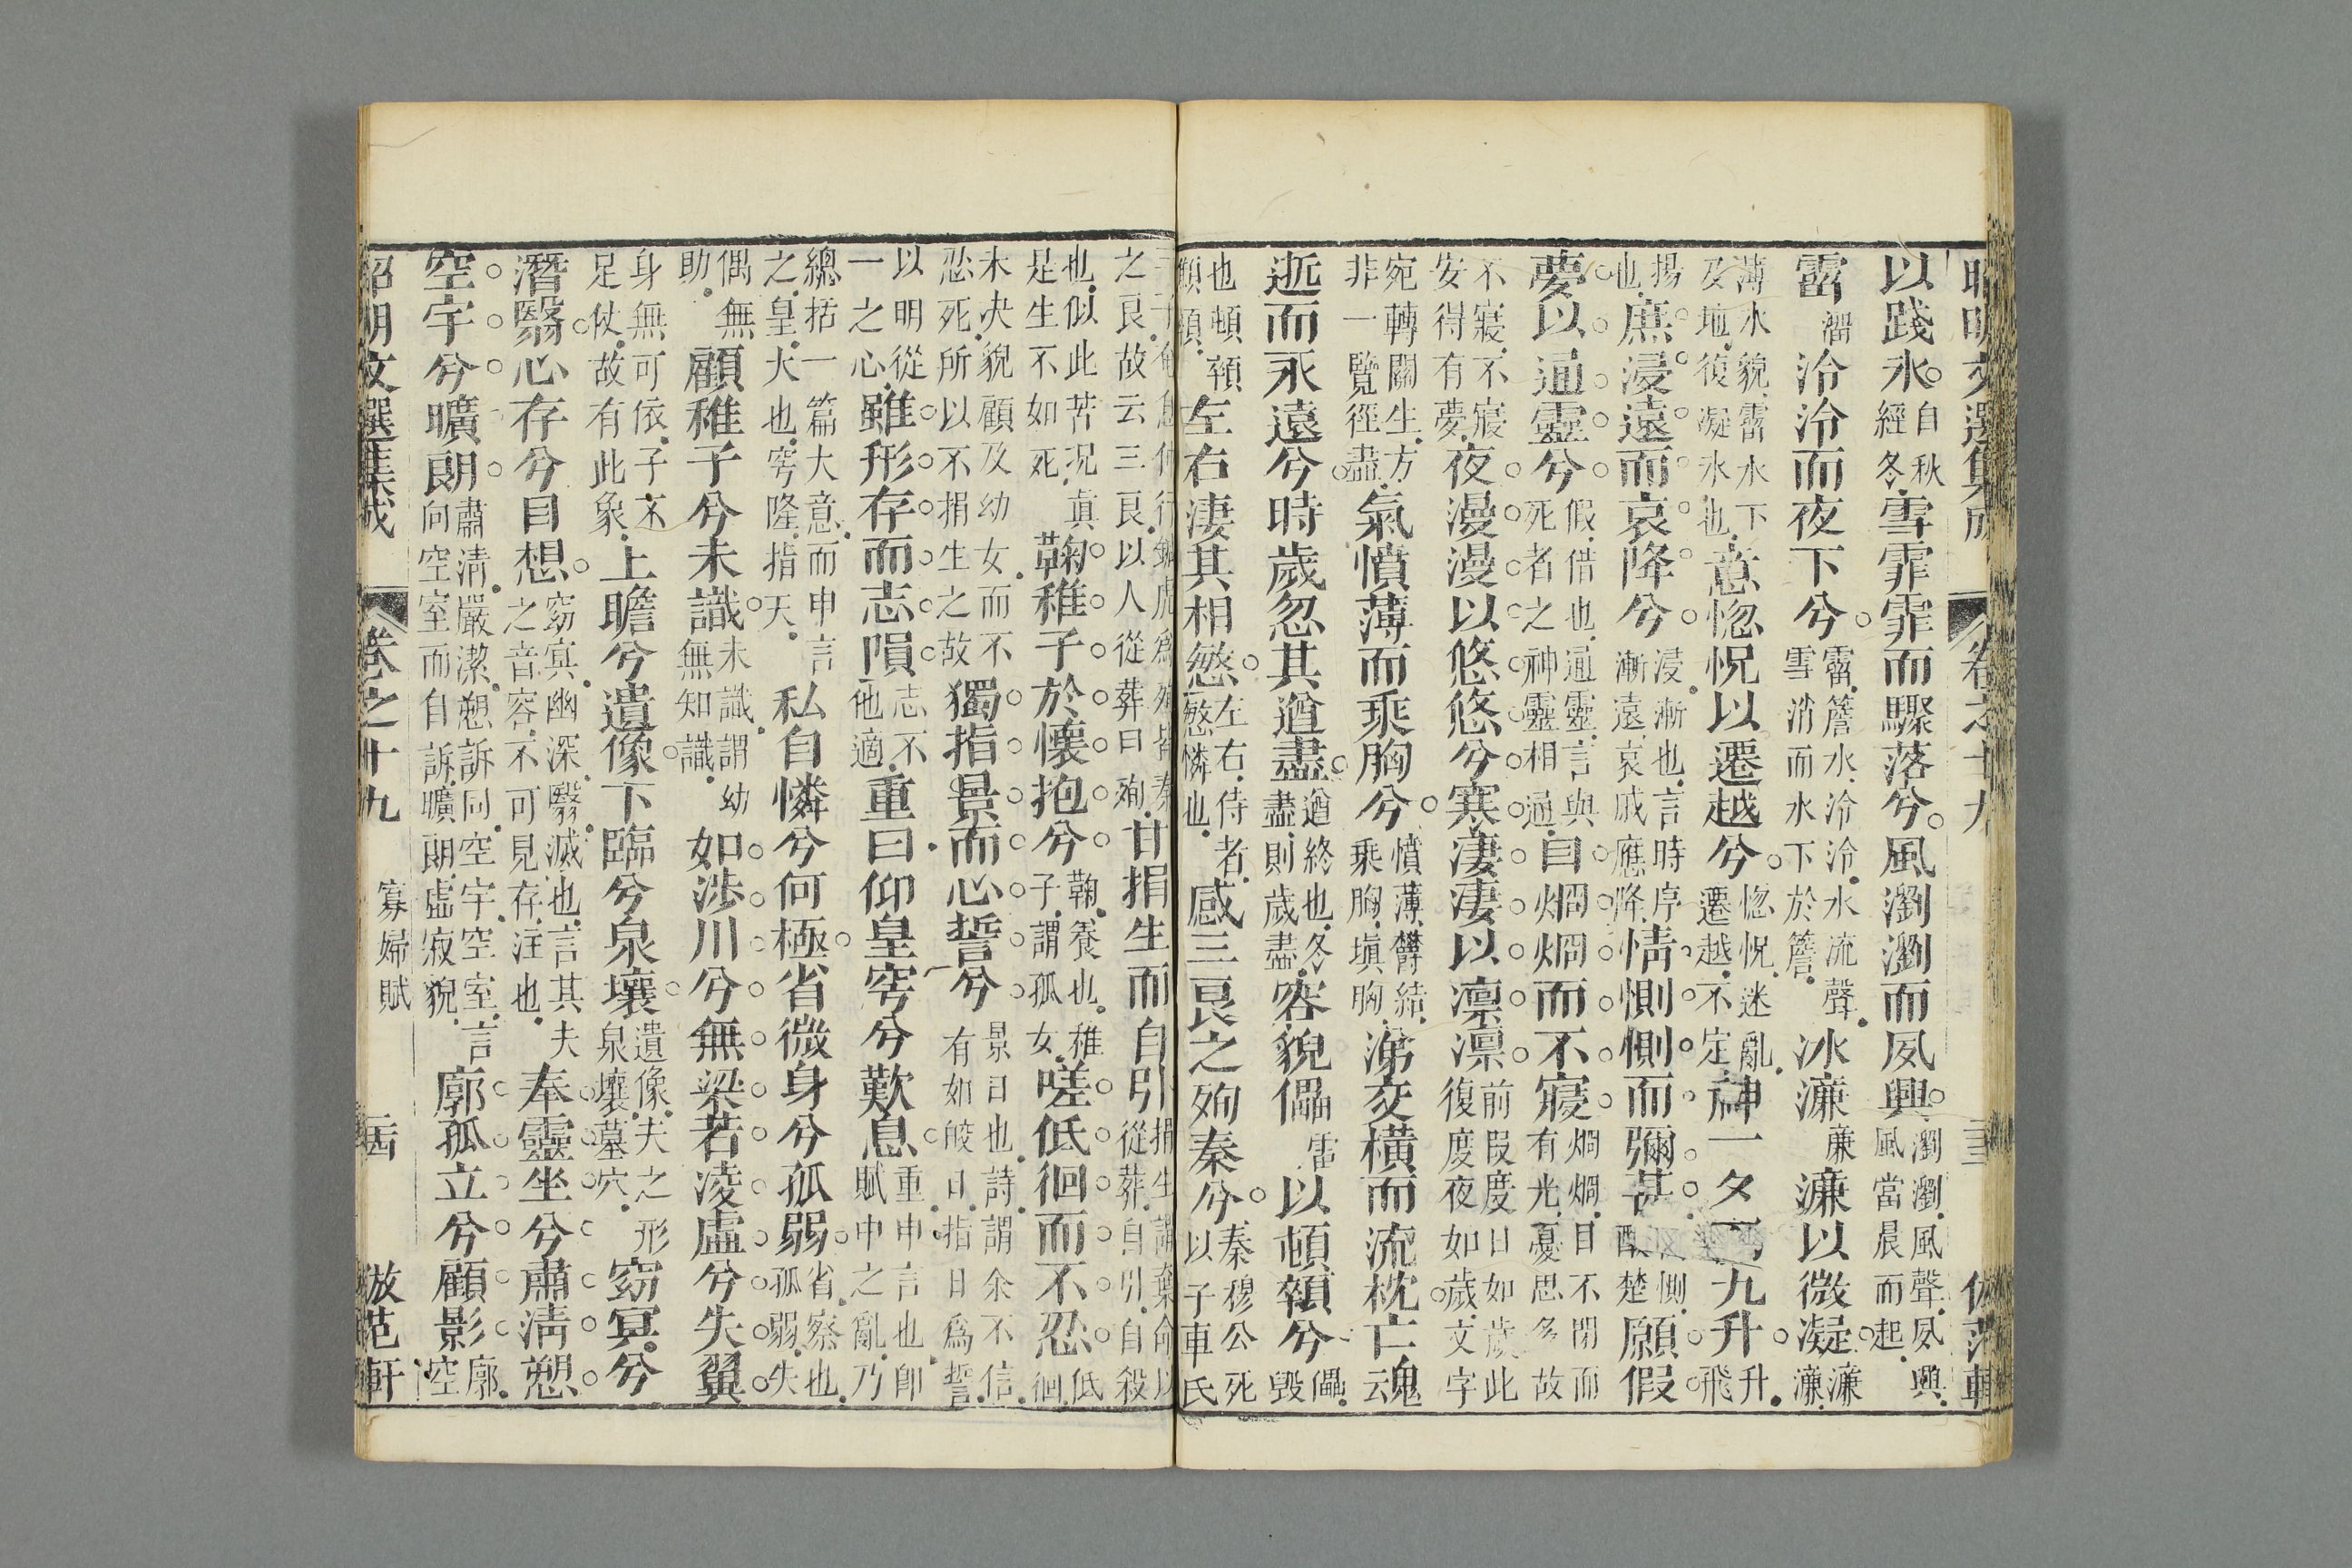 昭明文選集成　卷之十九
以踐氷自秋經冬雪霏霏而驟落兮風瀏瀏而夙興瀏瀏風聲夙興風當晨而起
霤溜泠泠而夜下兮霤簷水泠泠水流聲雪消而水下於簷冰溓亷溓以微凝溓溓
薄水貌霤水下及地復凝氷也意惚怳以遷越兮惚怳迷亂遷越不定神一夕而九升升飛
揚也庶浸遠而哀降兮浸漸也言時序漸遠哀戚應降情惻惻而彌甚惻楚願假
夢以通靈兮假借也通靈言與死者之神靈相通目烱烱而不寢烱烱目不閉而有光憂思多故
不寢不寢安得有夢夜漫漫以悠悠兮寒淒淒以凛凛前段度日如歲此復度夜如歲文字
宛轉關生方非一覽徑盡氣憤薄而乘胸兮憤薄鬱結乘胸塡胸涕交橫而流枕亡魂云
逝而永遠兮時歲忽其遒盡遒終也冬盡則歲盡容貌儡雷以頓顇兮儡毀
也頓顇顦顇左右淒其相慜左右侍者慜憐也感三良之殉秦兮秦穆公死以子車氏
三子奄息仲行鍼虎爲殉皆秦之良故云三良以人從葬曰殉甘捐生而自引捐生謂棄命以從葬自引自殺
也似此苦况真是生不如死鞠稚子於懷抱兮鞠養也稚子謂孤女嗟低徊而不忍低徊
未决貌顧及幼女而不忍死所以不捐生之故獨指景而心誓兮景日也詩謂余不信有如皎日指日爲誓
以明從一之心雖形存而志隕志不他適重曰仰皇穹兮歎息重申言也卽賦中之亂乃
總括一篇大意而申言之皇大也穹隆指天私自憐兮何極省微身兮孤弱省察也孤弱失
偶無助顧稚子兮未識未識謂幼無知識如涉川兮無梁若淩虛兮失翼
身無可依子不足仗故有此象上瞻兮遺像下臨兮泉壤遺像夫之形泉壤墓穴窈冥兮
潛翳心存兮目想窈冥幽深翳滅也言其夫之音容不可見存注也奉靈坐兮肅淸愬
空宇兮曠朗肅淸嚴潔愬訴同空宇空室言向空室而自訴曠朗虛寂貌廓孤立兮顧影廓空
昭明文選集成　卷之十九　寡婦賦　倣范軒